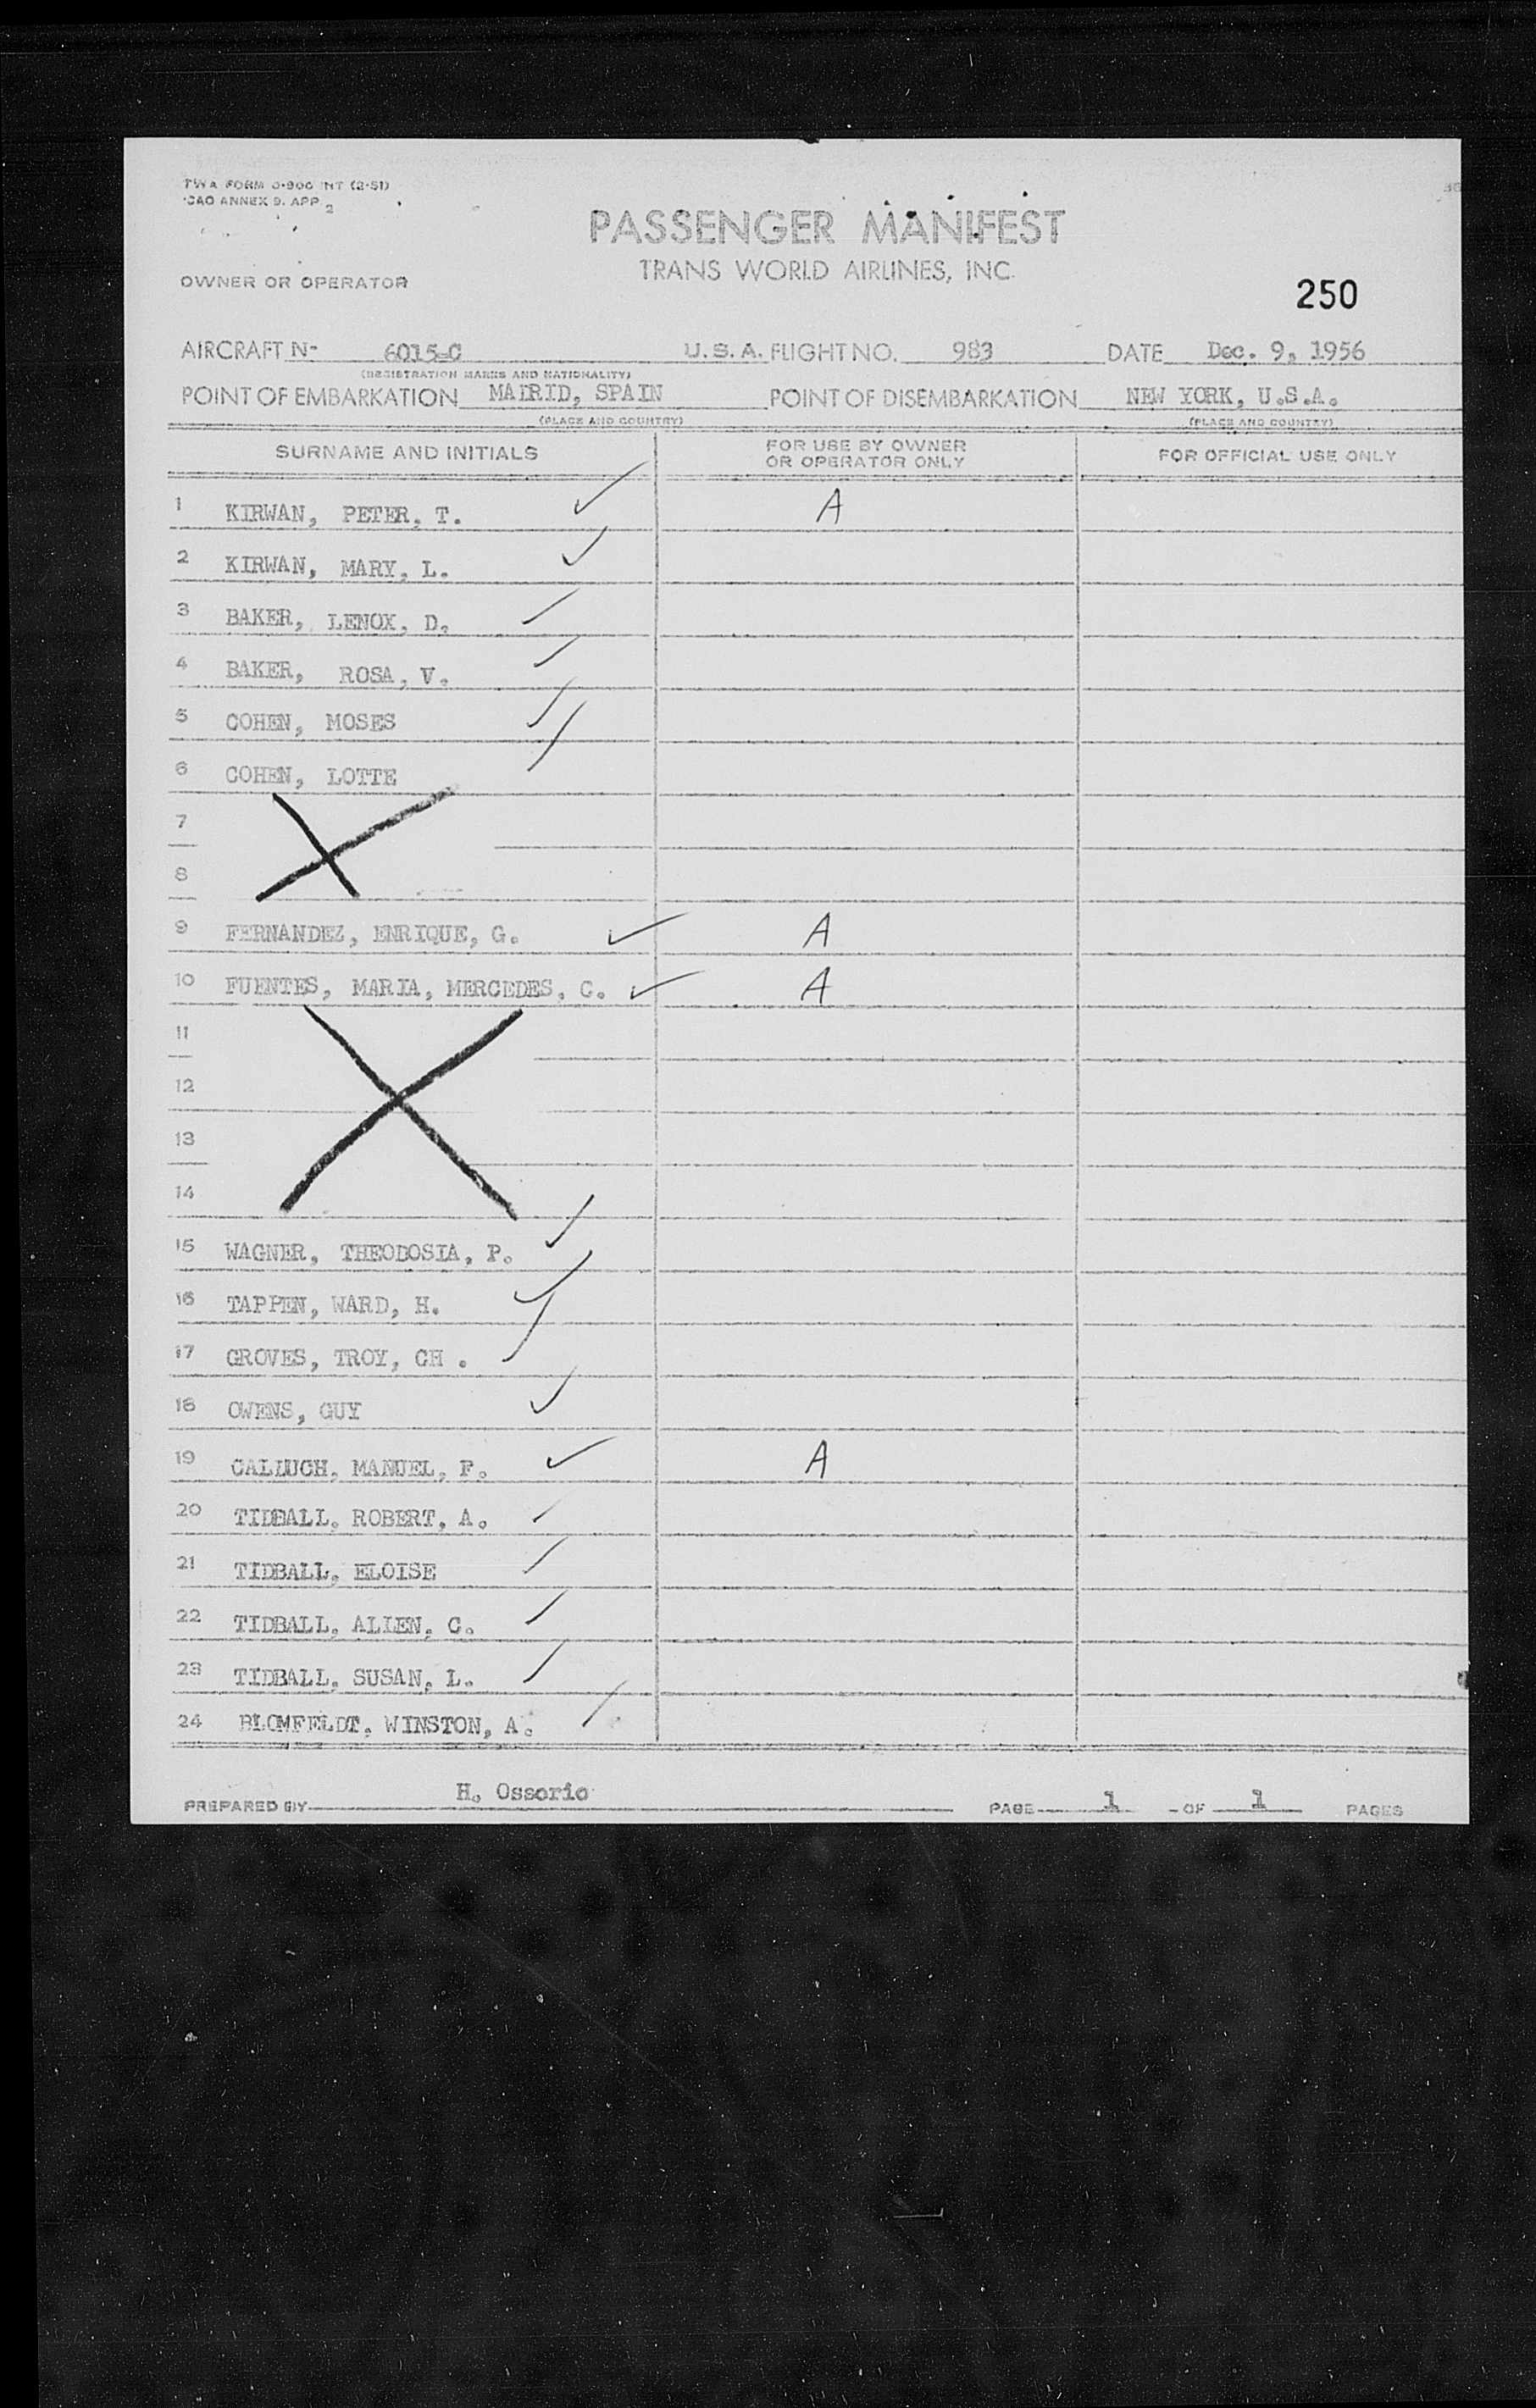 TWA FORM O-900 INT (2-51)
ICAO ANNEX 9. APP 2
PASSENGER MANIFEST
TRANS WORLD AIRLINES, INC.
OWNER OR OPERATOR
250
AIRCRAFT Nº 6015-C U.S.A. FLIGHT NO. 983 DATE Dec. 9, 1956
(REGISTRATION MARKS AND NATIONALITY)
POINT OF EMBARKATION MADRID, SPAIN POINT OF DISEMBARKATION NEW YORK, U.S.A.
(PLACE AND COUNTRY) (PLACE AND COUNTRY)
SURNAME AND INITIALS FOR USE BY OWNER OR OPERATOR ONLY FOR OFFICIAL USE ONLY
1 KIRWAN, PETER, T. ✓ A
2 KIRWAN, MARY, L. ✓
3 BAKER, LENOX, D. ✓
4 BAKER, ROSA, V. ✓
5 COHEN, MOSES ✓
6 COHEN, LOTTE ✓
7
8
9 FERNANDEZ, ENRIQUE, G. ✓ A
10 FUENTES, MARIA, MERCEDES, C. ✓ A
11
12
13
14
15 WAGNER, THEODOSIA, P. ✓
16 TAPPEN, WARD, H. ✓
17 GROVES, TROY, CH . ✓
18 OWENS, GUY ✓
19 CALLUCH, MANUEL, F. ✓ A
20 TIDBALL, ROBERT, A. ✓
21 TIDBALL, ELOISE ✓
22 TIDBALL, ALLEN, C. ✓
23 TIDBALL, SUSAN, L. ✓
24 BLOMFELDT, WINSTON, A. ✓
PREPARED BY H. Ossorio PAGE 1 OF 1 PAGES